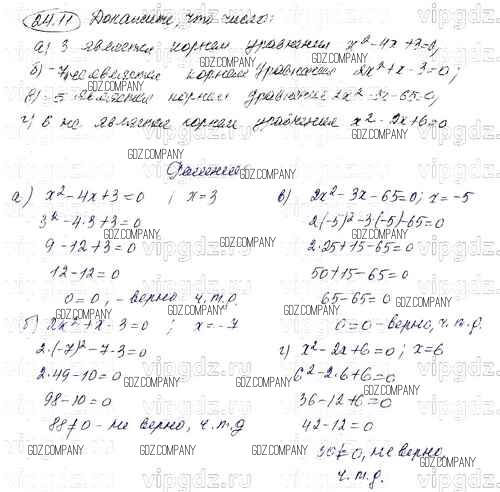 24.11 Докажите, что число:
а) 3 является корнем уравнения x²-4x+3=0,
б) -7 не является корнем уравнения 2x²+x-3=0;
в) -5 является корнем уравнения 2x²-3x-65=0,
г) 6 не является корнем уравнения x²-2x+6=0
Решение
а) x²-4x+3=0 ; x=3
3²-4·3+3=0
9-12+3=0
12-12=0
0=0, - верно ч.т.д.
б) 2x²+x-3=0 ; x=-7
2·(-7)²-7-3=0
2·49-10=0
98-10=0
88≠0 - не верно, ч.т.д
в) 2x²-3x-65=0; x=-5
2(-5)²-3(-5)-65=0
2·25+15-65=0
50+15-65=0
65-65=0
0=0 - верно, ч.т.д.
г) x²-2x+6=0; x=6
6²-2·6+6=0
36-12+6=0
42-12=0
30≠0, не верно,
ч.т.д.
GDZ.COMPANY
vipgdz.ru